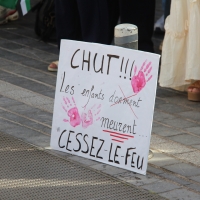 CHUT!!!
Les enfants dorment
meurent
CESSEZ-LE-FEU